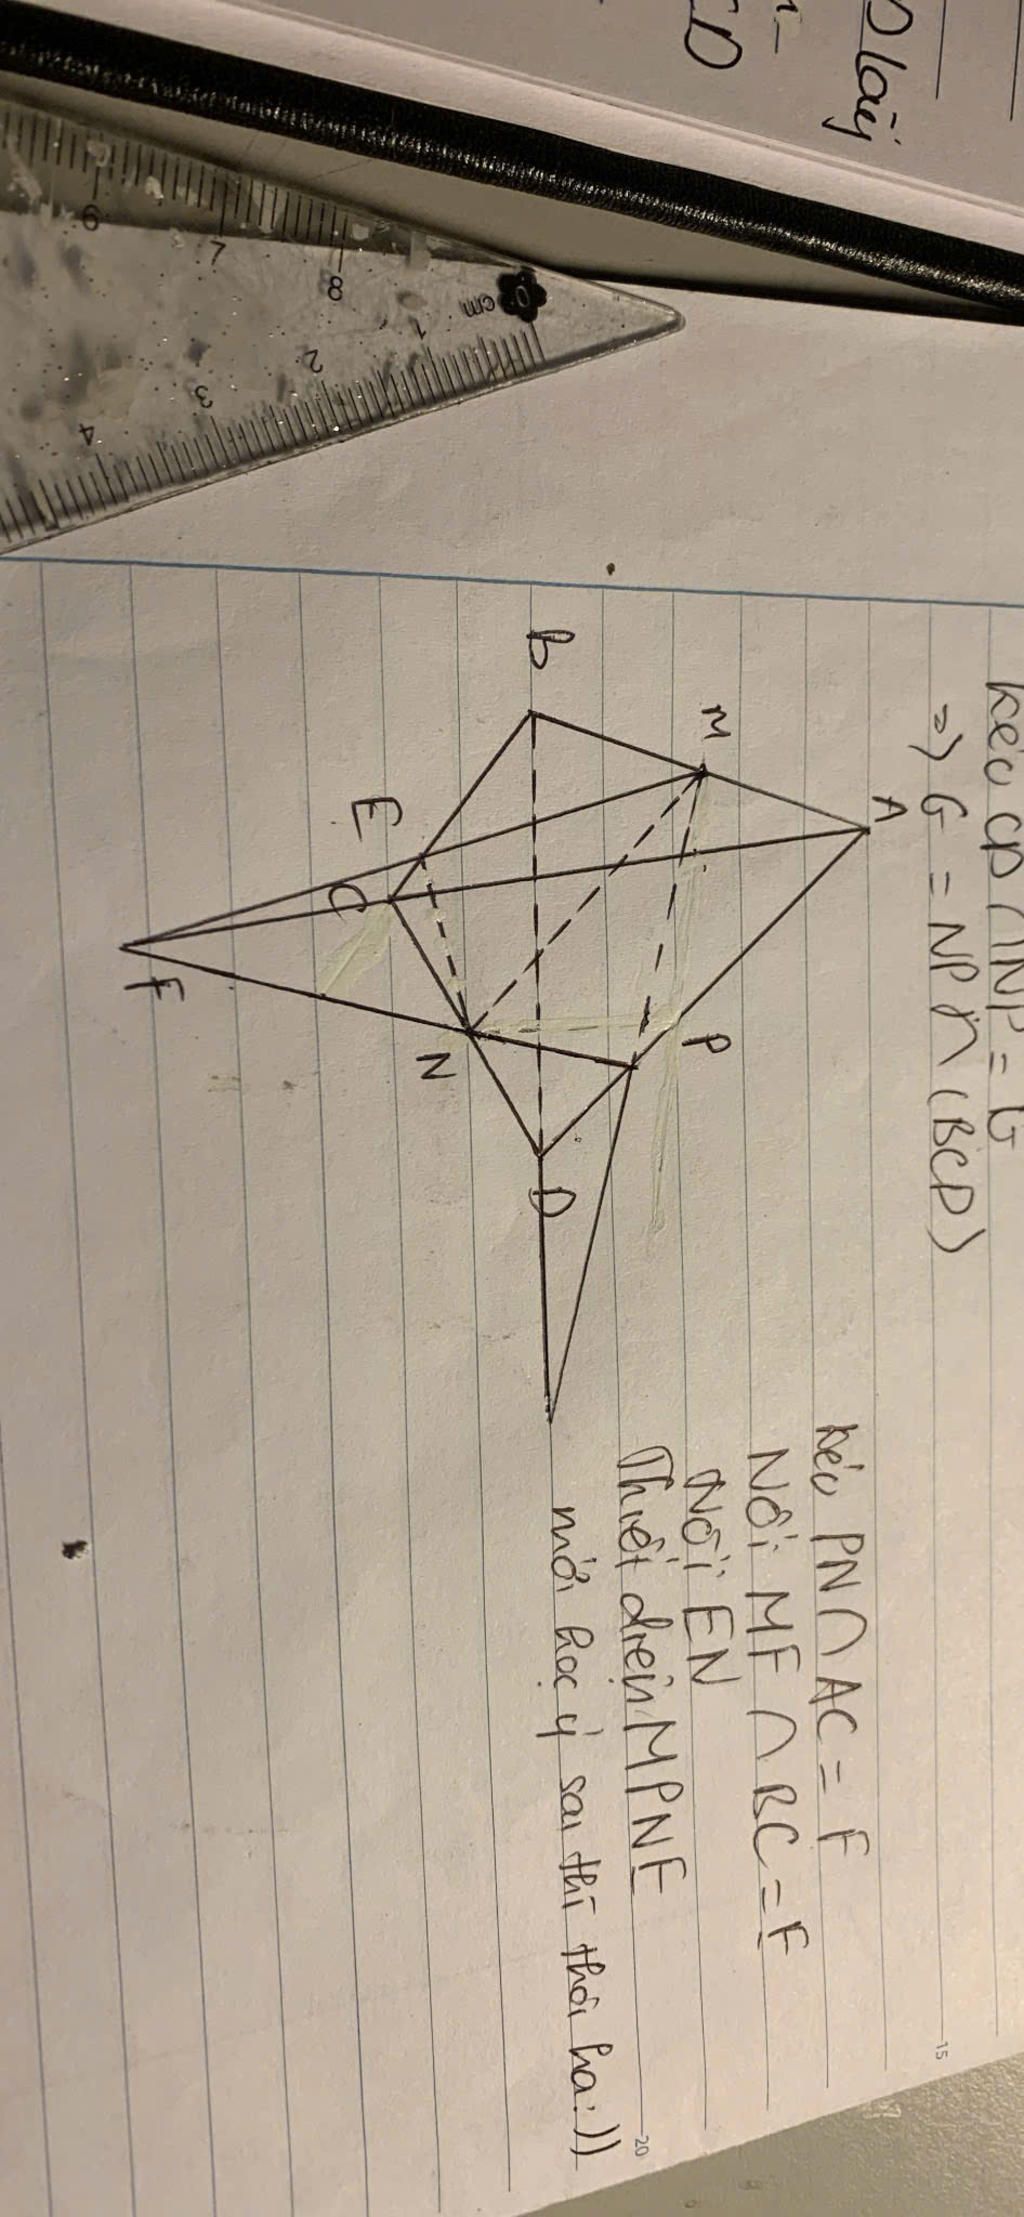 D lấy
CD
kéo CD ∩ NP = G
=> G = NP ∩ (BCD)
kéo PN ∩ AC = F
Nối MF ∩ BC = E
Nối EN
Thiết diện MPNE
mới học ý sai thì thôi ha :))
A
M
B
P
E
C
D
N
F
15
20
0 cm
1
2
3
4
8
7
6